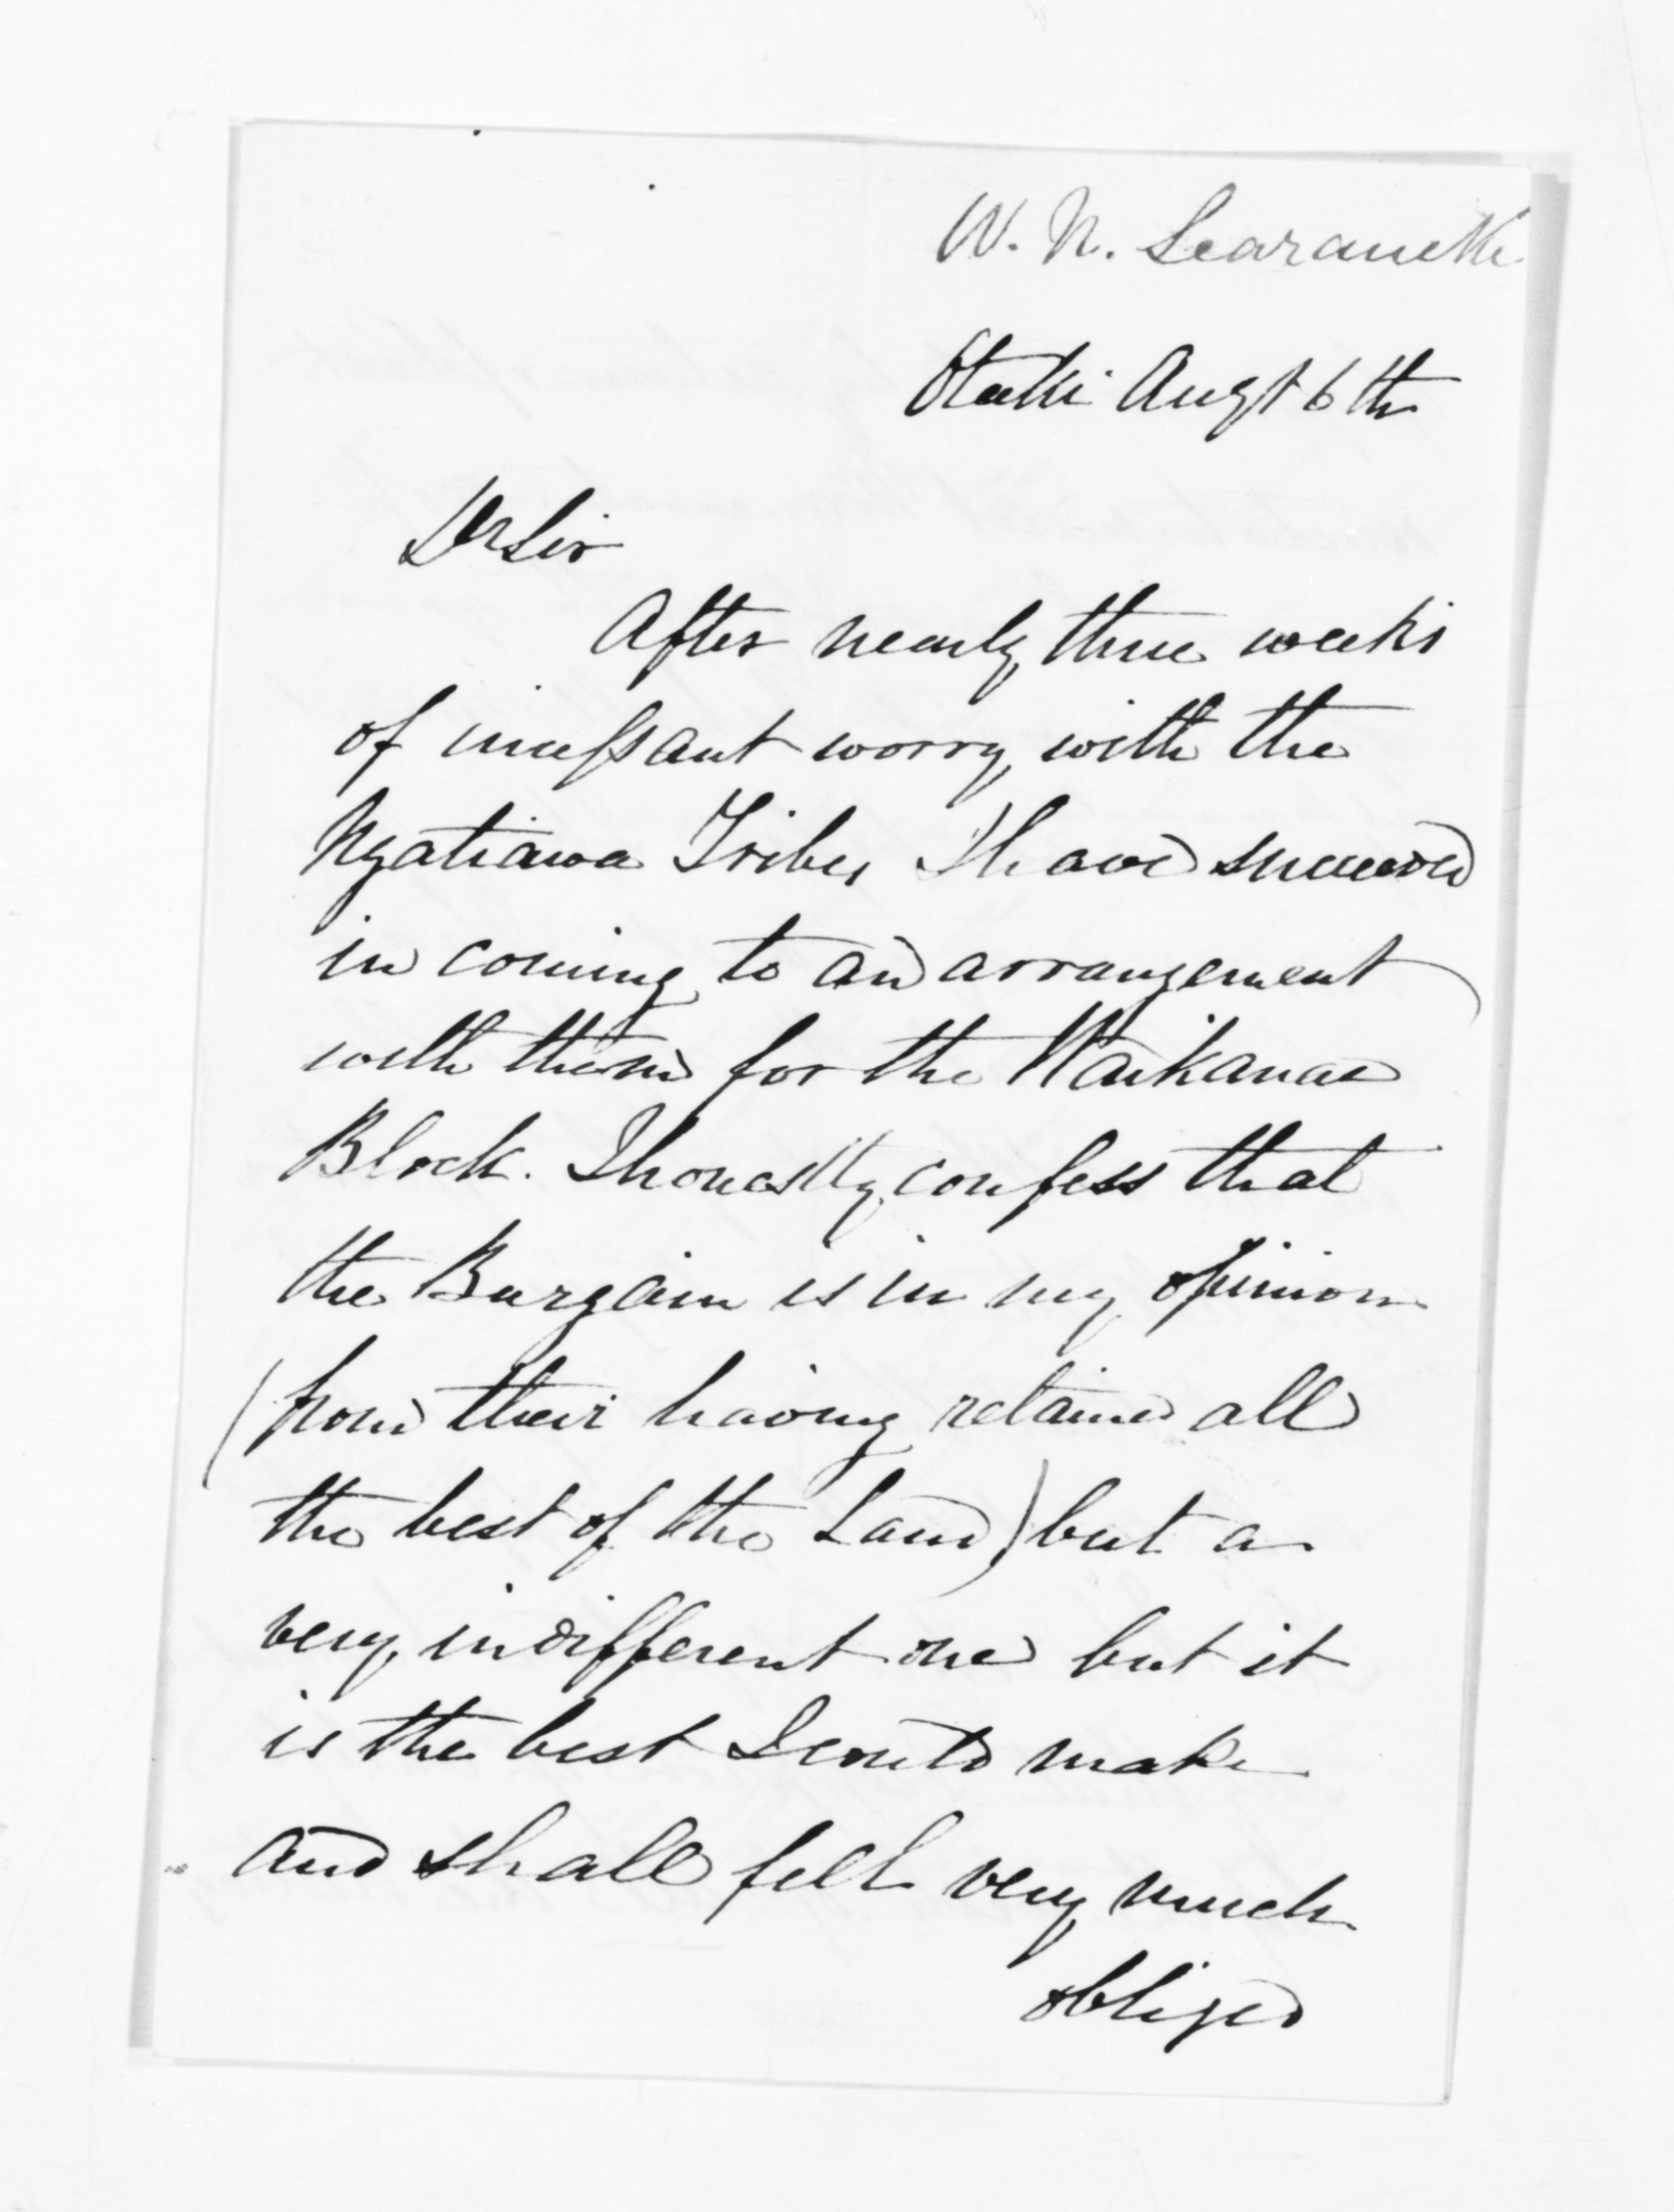 W. N. Searancke
Otaki Augt 6th
Dr Sir
After nearly three weeks
of incessant worry with the
Ngatiawa Tribes I have succeeded
in coming to an arrangement
with them for the Waikanae
Block. I honestly confess that
the Bargain is in my opinion
(from their having retained all
the best of the Land) but a
very indifferent one but it
is the best I could make
and shall fell very much
obliged